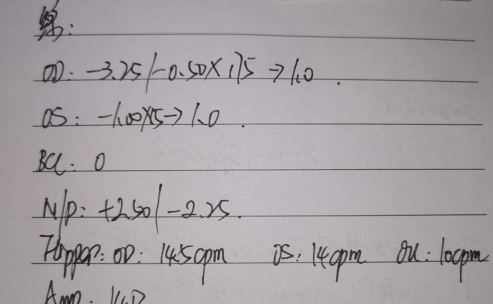 OD: -3.25/-0.50×175→1.0.
OS: -1.00×15→1.0.
BCC: 0
N/P: +2.50/-2.25.
Flipper: OD: 14.5cpm OS: 14cpm OU: 10cpm
Amp: